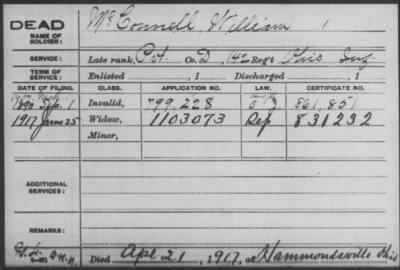 DEAD
NAME OF SOLDIER:
McConnell, William
SERVICE:
Late rank, Pvt. Co. D, 142 Reg't Ohio Inf.
TERM OF SERVICE:
Enlisted , 1 Discharged , 1
DATE OF FILING. CLASS. APPLICATION NO. LAW. CERTIFICATE NO.
1890 Sep. 1 Invalid, 799,228 861,851
1917 June 25 Widow, 1103073 Rep 831232
Minor,
ADDITIONAL SERVICES:
REMARKS:
Died Apl 21, 1917, at Hammondsville Ohio